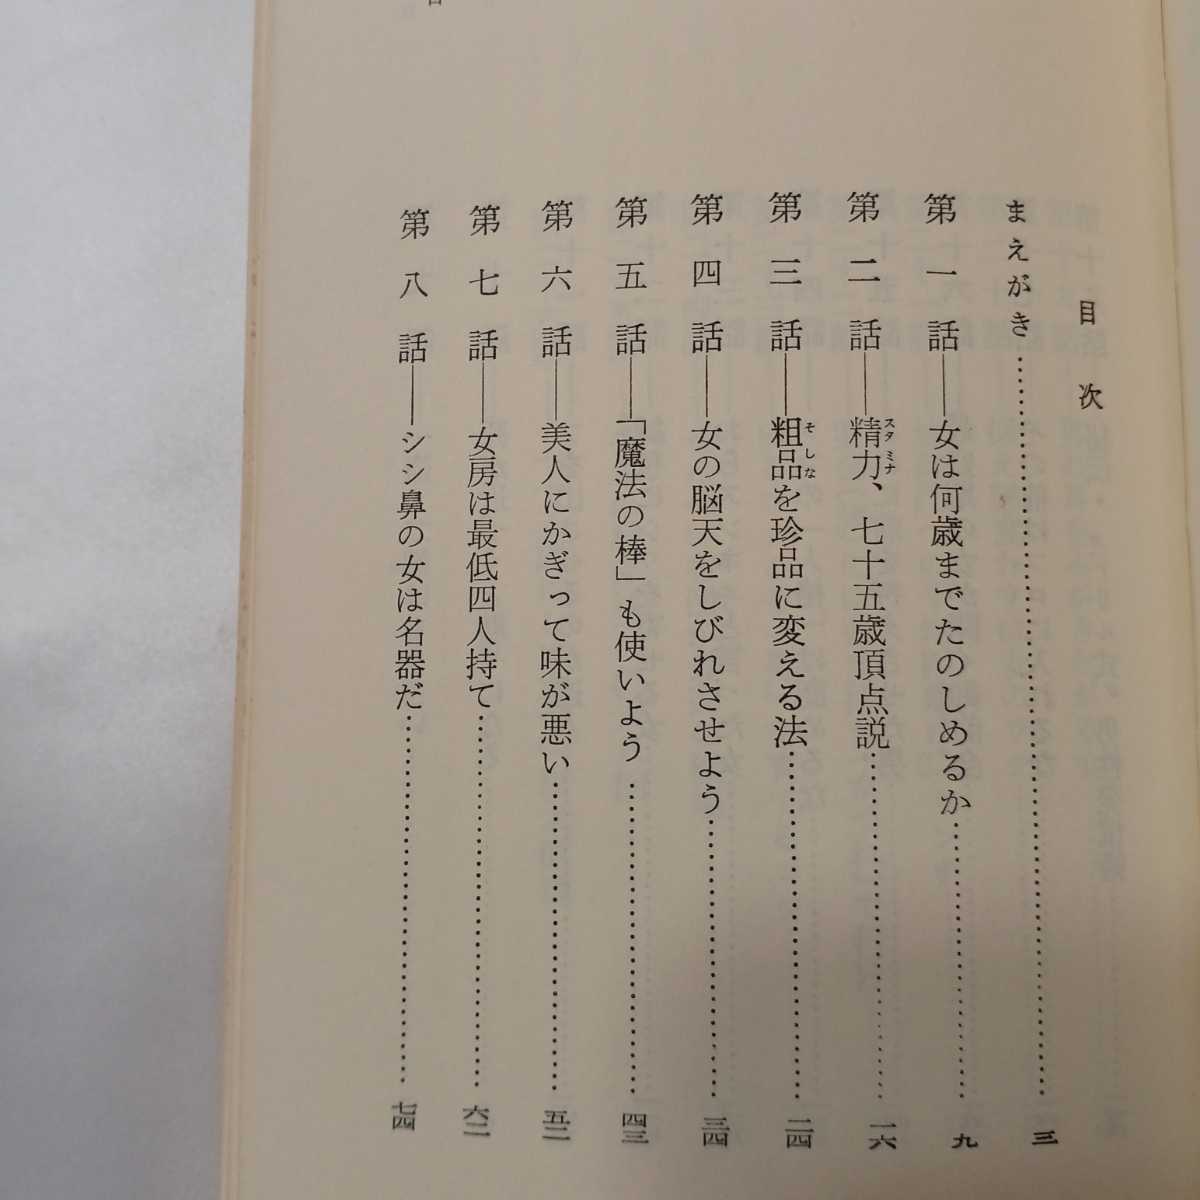 目次
まえがき……三
第一話——女は何歳までたのしめるか……九
第二話——精力、七十五歳頂点説……一六
スタミナ
第三話——粗品を珍品に変える法……二四
そしな
第四話——女の脳天をしびれさせよう……三四
第五話——「魔法の棒」も使いよう……四三
第六話——美人にかぎって味が悪い……五二
第七話——女房は最低四人持て……六二
第八話——シシ鼻の女は名器だ……七四